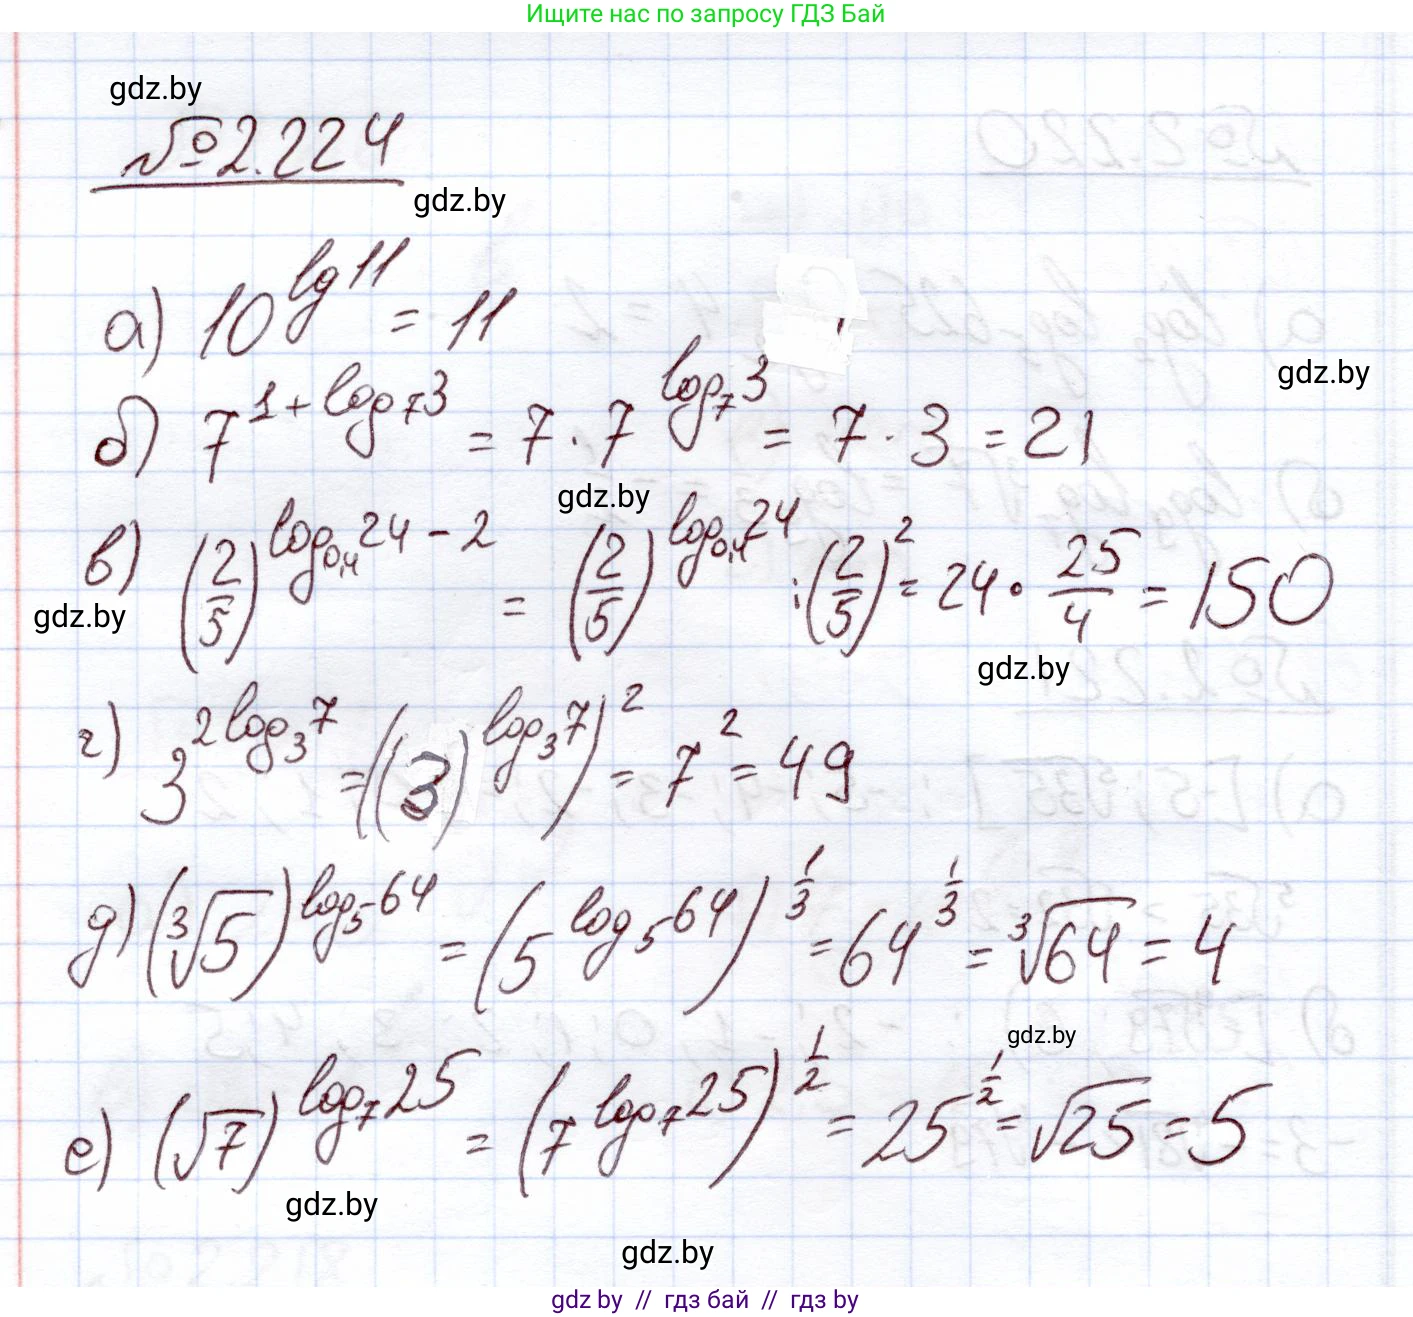 Ищите нас по запросу ГДЗ Бай
gdz.by
№2.224
gdz.by
а) 10^{lg 11} = 11
gdz.by
б) 7^{1+log_7 3} = 7 · 7^{log_7 3} = 7 · 3 = 21
gdz.by
в) (2/5)^{log_{0,4} 24 - 2} = (2/5)^{log_{0,4} 24} : (2/5)^2 = 24 · 25/4 = 150
gdz.by
gdz.by
г) 3^{2 log_3 7} = ((3)^{log_3 7})^2 = 7^2 = 49
д) (∛5)^{log_5 64} = (5^{log_5 64})^{1/3} = 64^{1/3} = ∛64 = 4
gdz.by
е) (√7)^{log_7 25} = (7^{log_7 25})^{1/2} = 25^{1/2} = √25 = 5
gdz.by
gdz.by
gdz by // гдз бай // гдз by